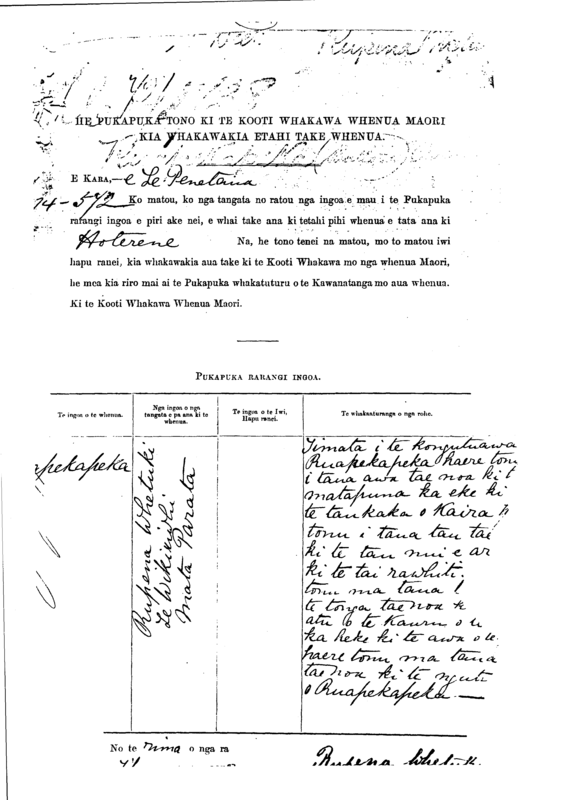 HE PUKAPUKA TONO KI TE KOOTI WHAKAWA WHENUA MAORI
KIA WHAKAWAKIA ETAHI TAKE WHENUA.
E KARA,—e Te Penetana
74-572 Ko matou, ko nga tangata no ratou nga ingoa e mau i te Pukapuka
rarangi ingoa e piri ake nei, e whai take ana ki tetahi pihi whenua e tata ana ki
Hoterene Na, he tono tenei na matou, mo to matou iwi
hapu ranei, kia whakawakia aua take ki te Kooti Whakawa mo nga whenua Maori,
he mea kia riro mai ai te Pukapuka whakatuturu o te Kawanatanga mo aua whenua.
Ki te Kooti Whakawa Whenua Maori.
PUKAPUKA RARANGI INGOA.
Te ingoa o te whenua.
Nga ingoa o nga
tangata e pa ana ki te
whenua.
Te ingoa o te Iwi,
Hapu ranei.
Te whakaaturanga o nga rohe.
apekapeka
Rupena Whetuki
Te Wikiriwhi
Mata Parata
Timata i te kongutuawa
Ruapekapeka haere tonu
i taua awa tae noa ki t
matapuna ka eke ki
te taukaka o Kaira h
tonu i taua tau tae
ki te tau nui e ar
ki te tai rawhiti.
tonu ma taua
te tonga tae noa k
atu o te Kauru o
ka heke ki te awa o te
haere tonu ma taua
tae noa ki te ngutu
o Ruapekapeka.—
No te rima o nga ra
Rupena Whetuk